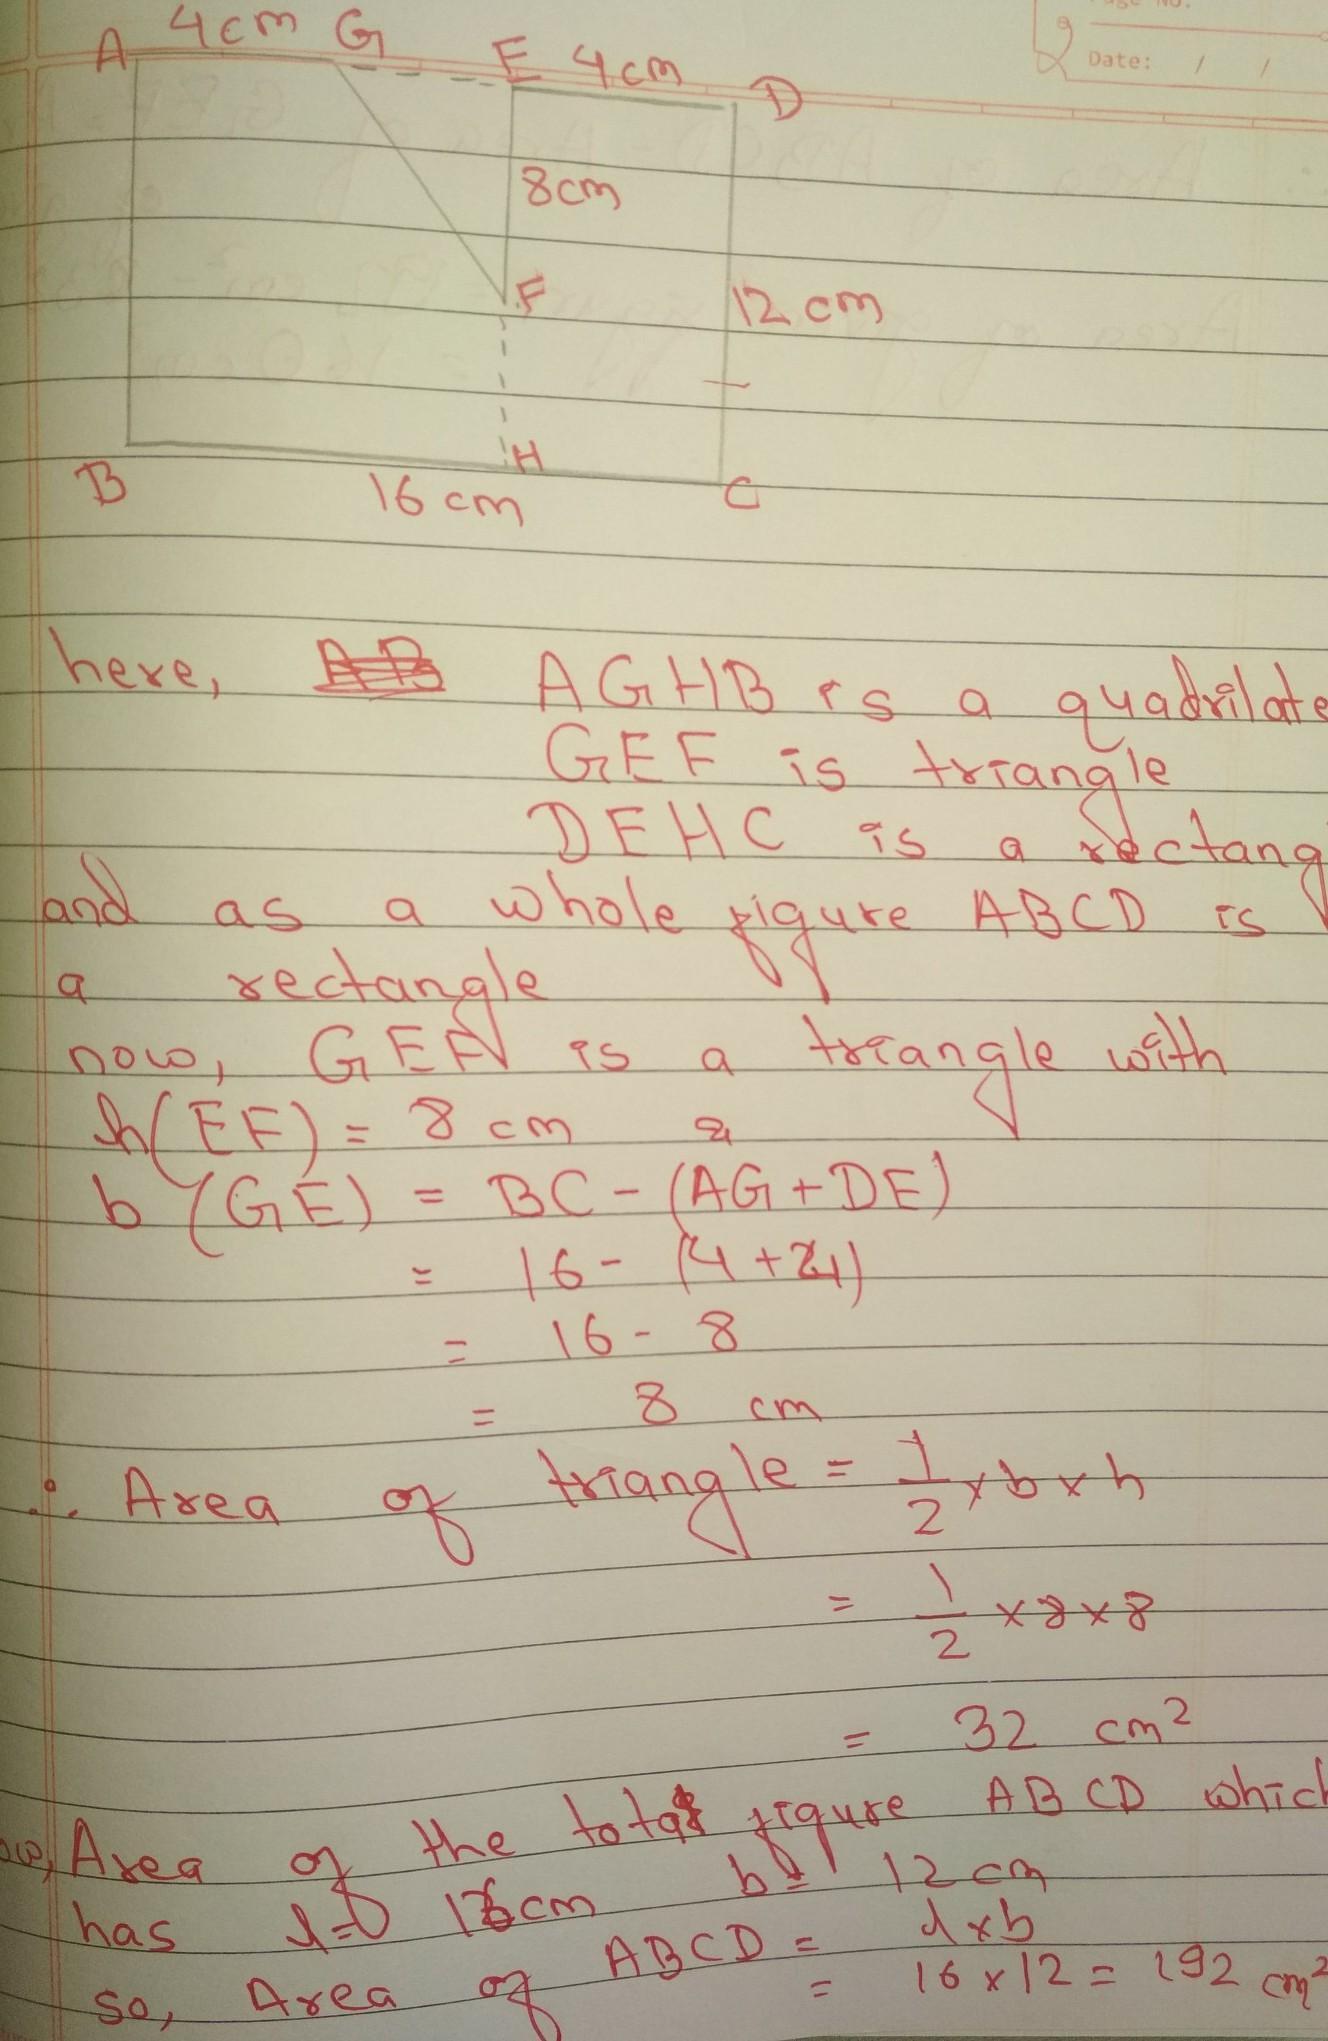 Date: / /
A 4cm G E 4cm D
8cm
F
12 cm
H
B 16 cm C
here, AGHB is a quadrilate
GEF is triangle
DEHC is a rectang
and as a whole figure ABCD is
a rectangle
now, GEF is a triangle with
h(EF) = 8 cm
b (GE) = BC - (AG + DE)
= 16 - (4 + 4)
= 16 - 8
= 8 cm
∴ Area of triangle = 1/2 × b × h
= 1/2 × 8 × 8
= 32 cm²
Area of the total figure ABCD which
has l = 16cm b = 12 cm
so, Area of ABCD = l × b
= 16 × 12 = 192 cm²